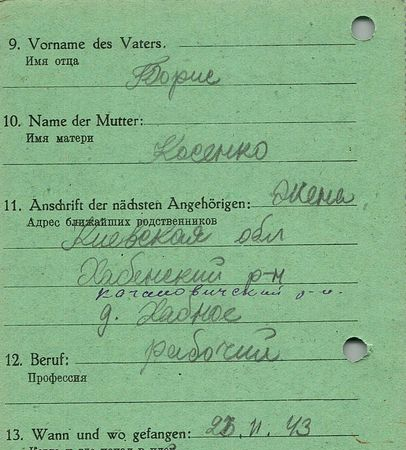 9. Vorname des Vaters.
Имя отца
Борис
10. Name der Mutter:
Имя матери
Косенко
11. Anschrift der nächsten Angehörigen: Жена
Адрес ближайших родственников
Киевская обл
Хабенский р-н
Кагановический р-н.
д. Хабное
рабочий
12. Beruf:
Профессия
13. Wann und wo gefangen: 43